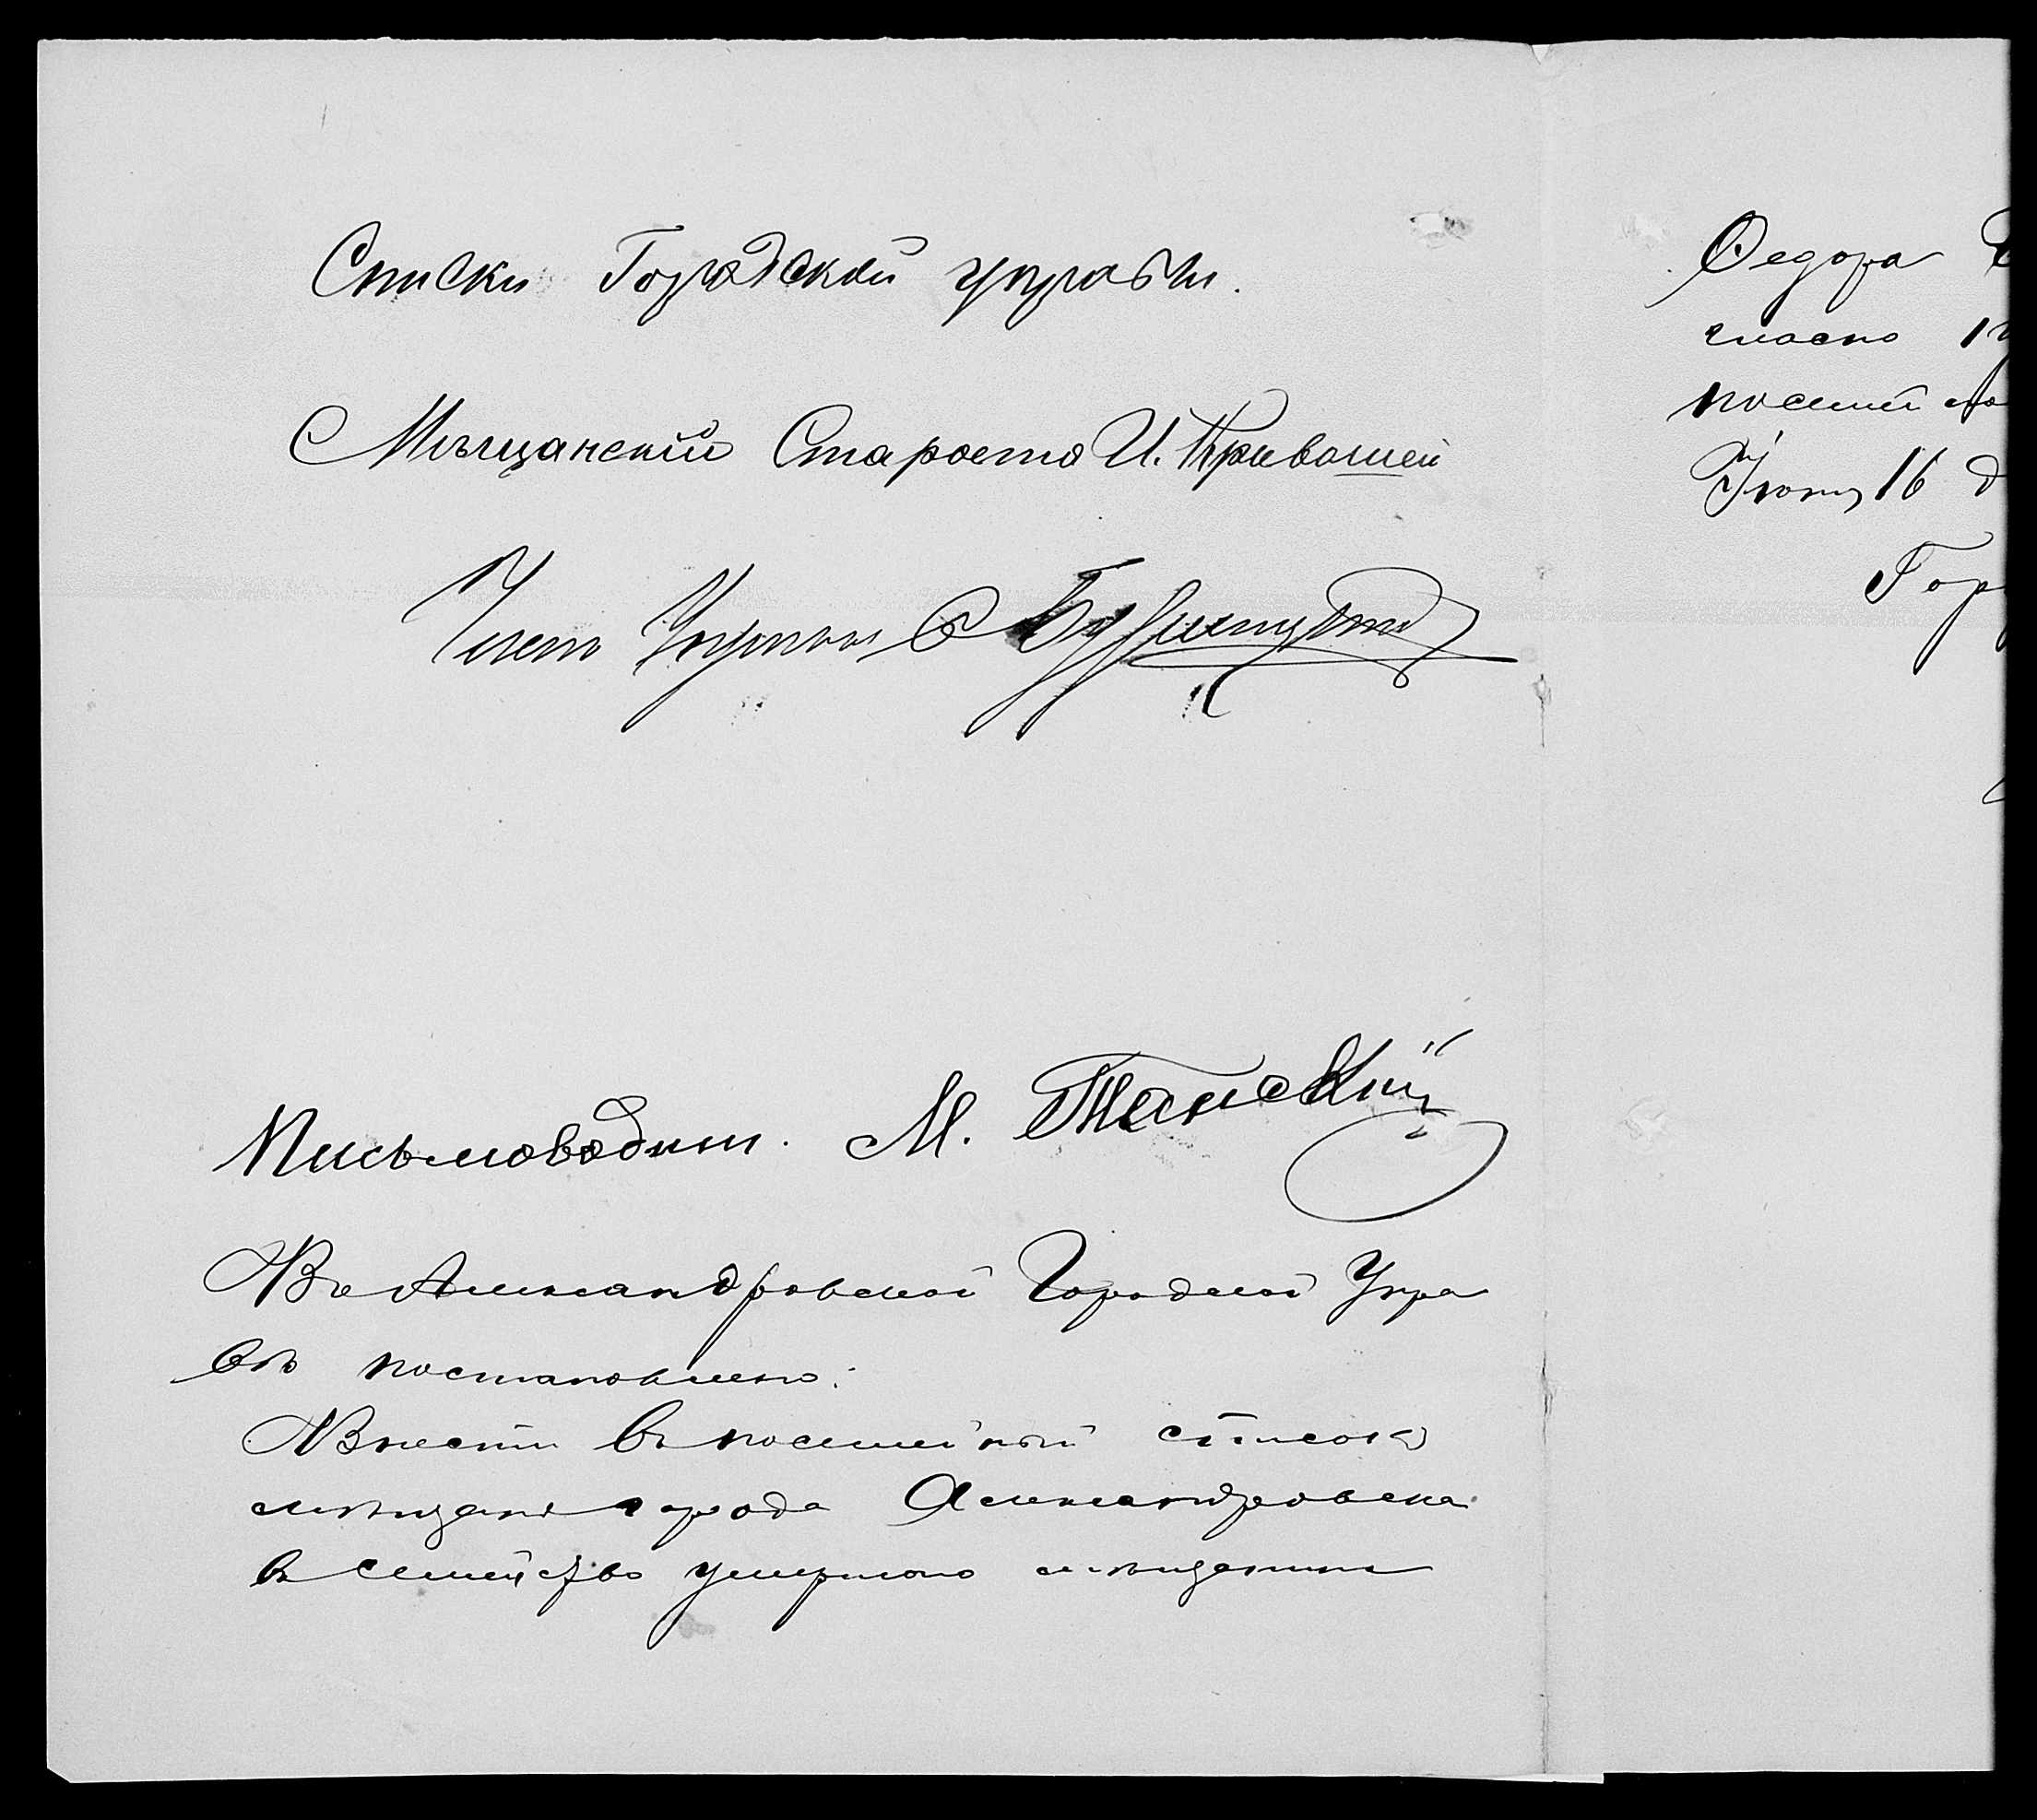 Списки Городской управы.
Мѣщанскій Староста И. Кривошей
Членъ Управы
Письмоводит. М. Танскій
Въ Александровской Городской Упра
вѣ постановлено:
Внести въ посемейный списокъ
мѣщанъ города Александровска
въ семейство умершаго мѣщанина
Федора
гласно
посемей
Іюня 16 д
Гор